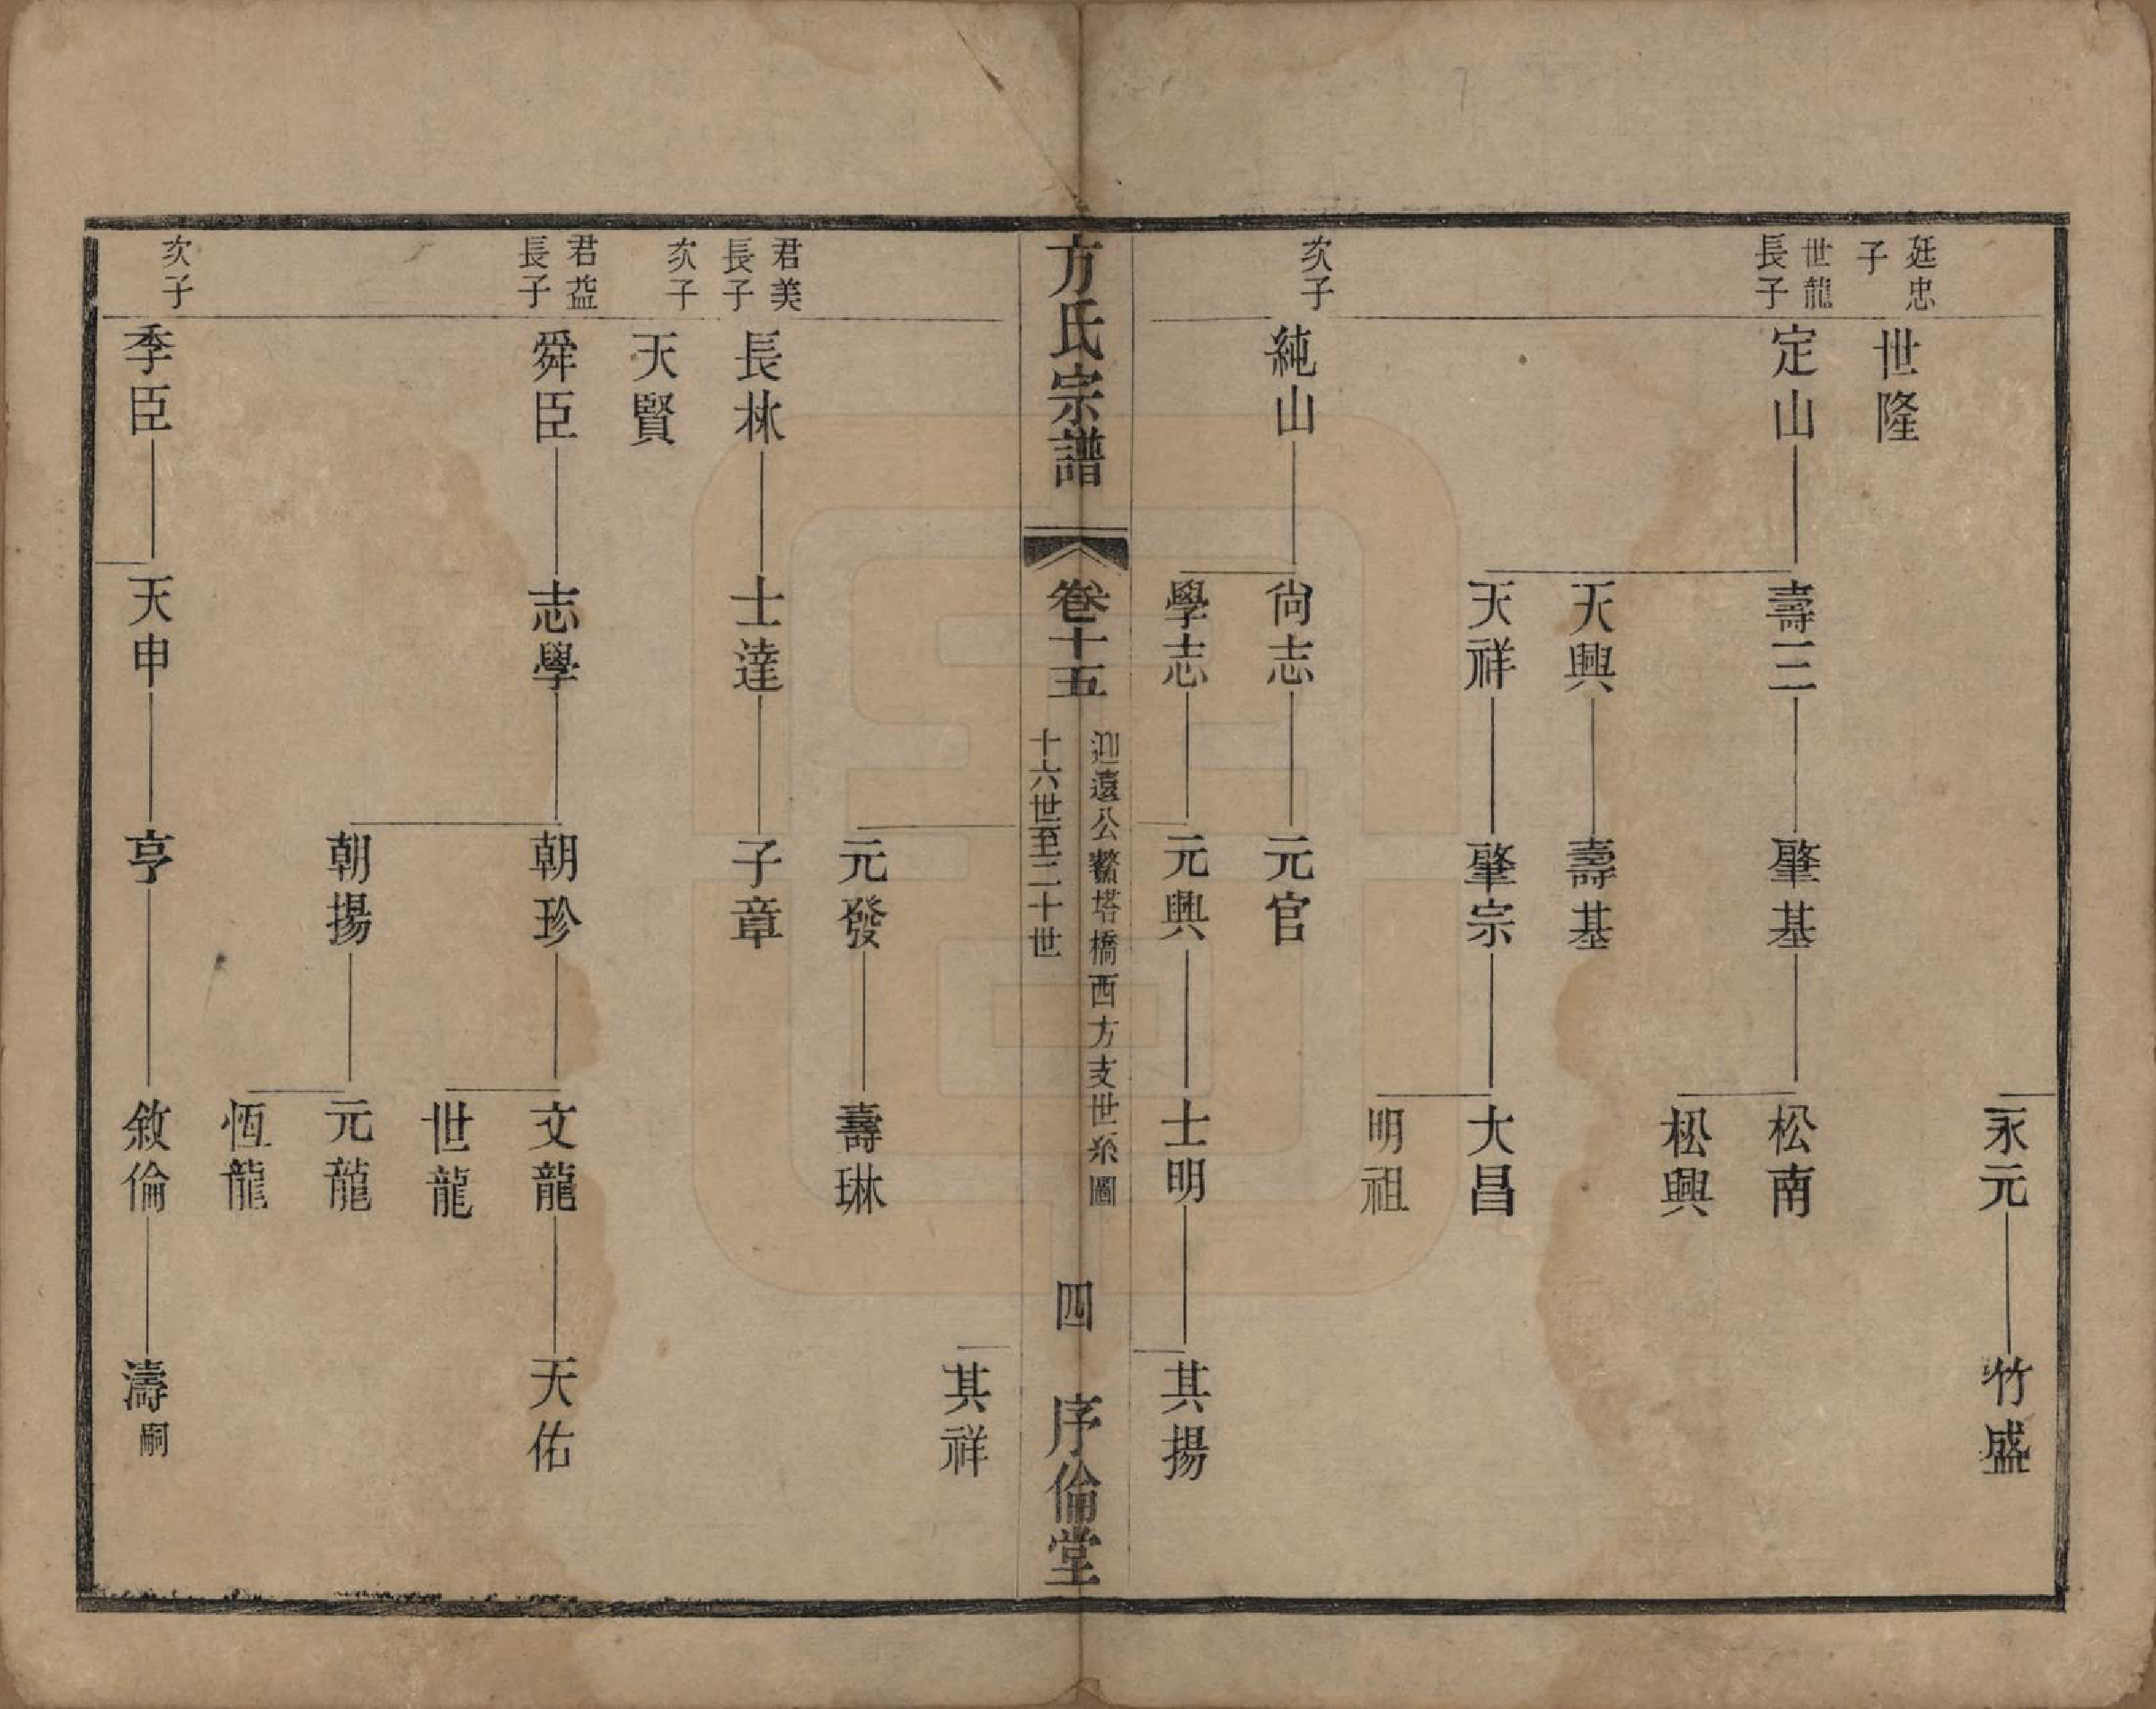 永元 竹盛
廷忠子 世隆
世龍長子 定山 壽三 肇基 松南
松興
天興 壽基
天祥 肇宗 大昌
明祖
次子 純山 尙志 元官
學志 元興 士明 其揚
方氏宗譜 卷十五 迎遠公鰲塔橋西方支世系圖 十六世至二十世 四 序倫堂
其祥
元發 壽琳
君美長子 長林 士達 子章
次子 天賢
君益長子 舜臣 志學 朝珍 文龍 天佑
世龍
朝揚 元龍
恆龍
次子 季臣 天申 亨 敘倫 濤嗣